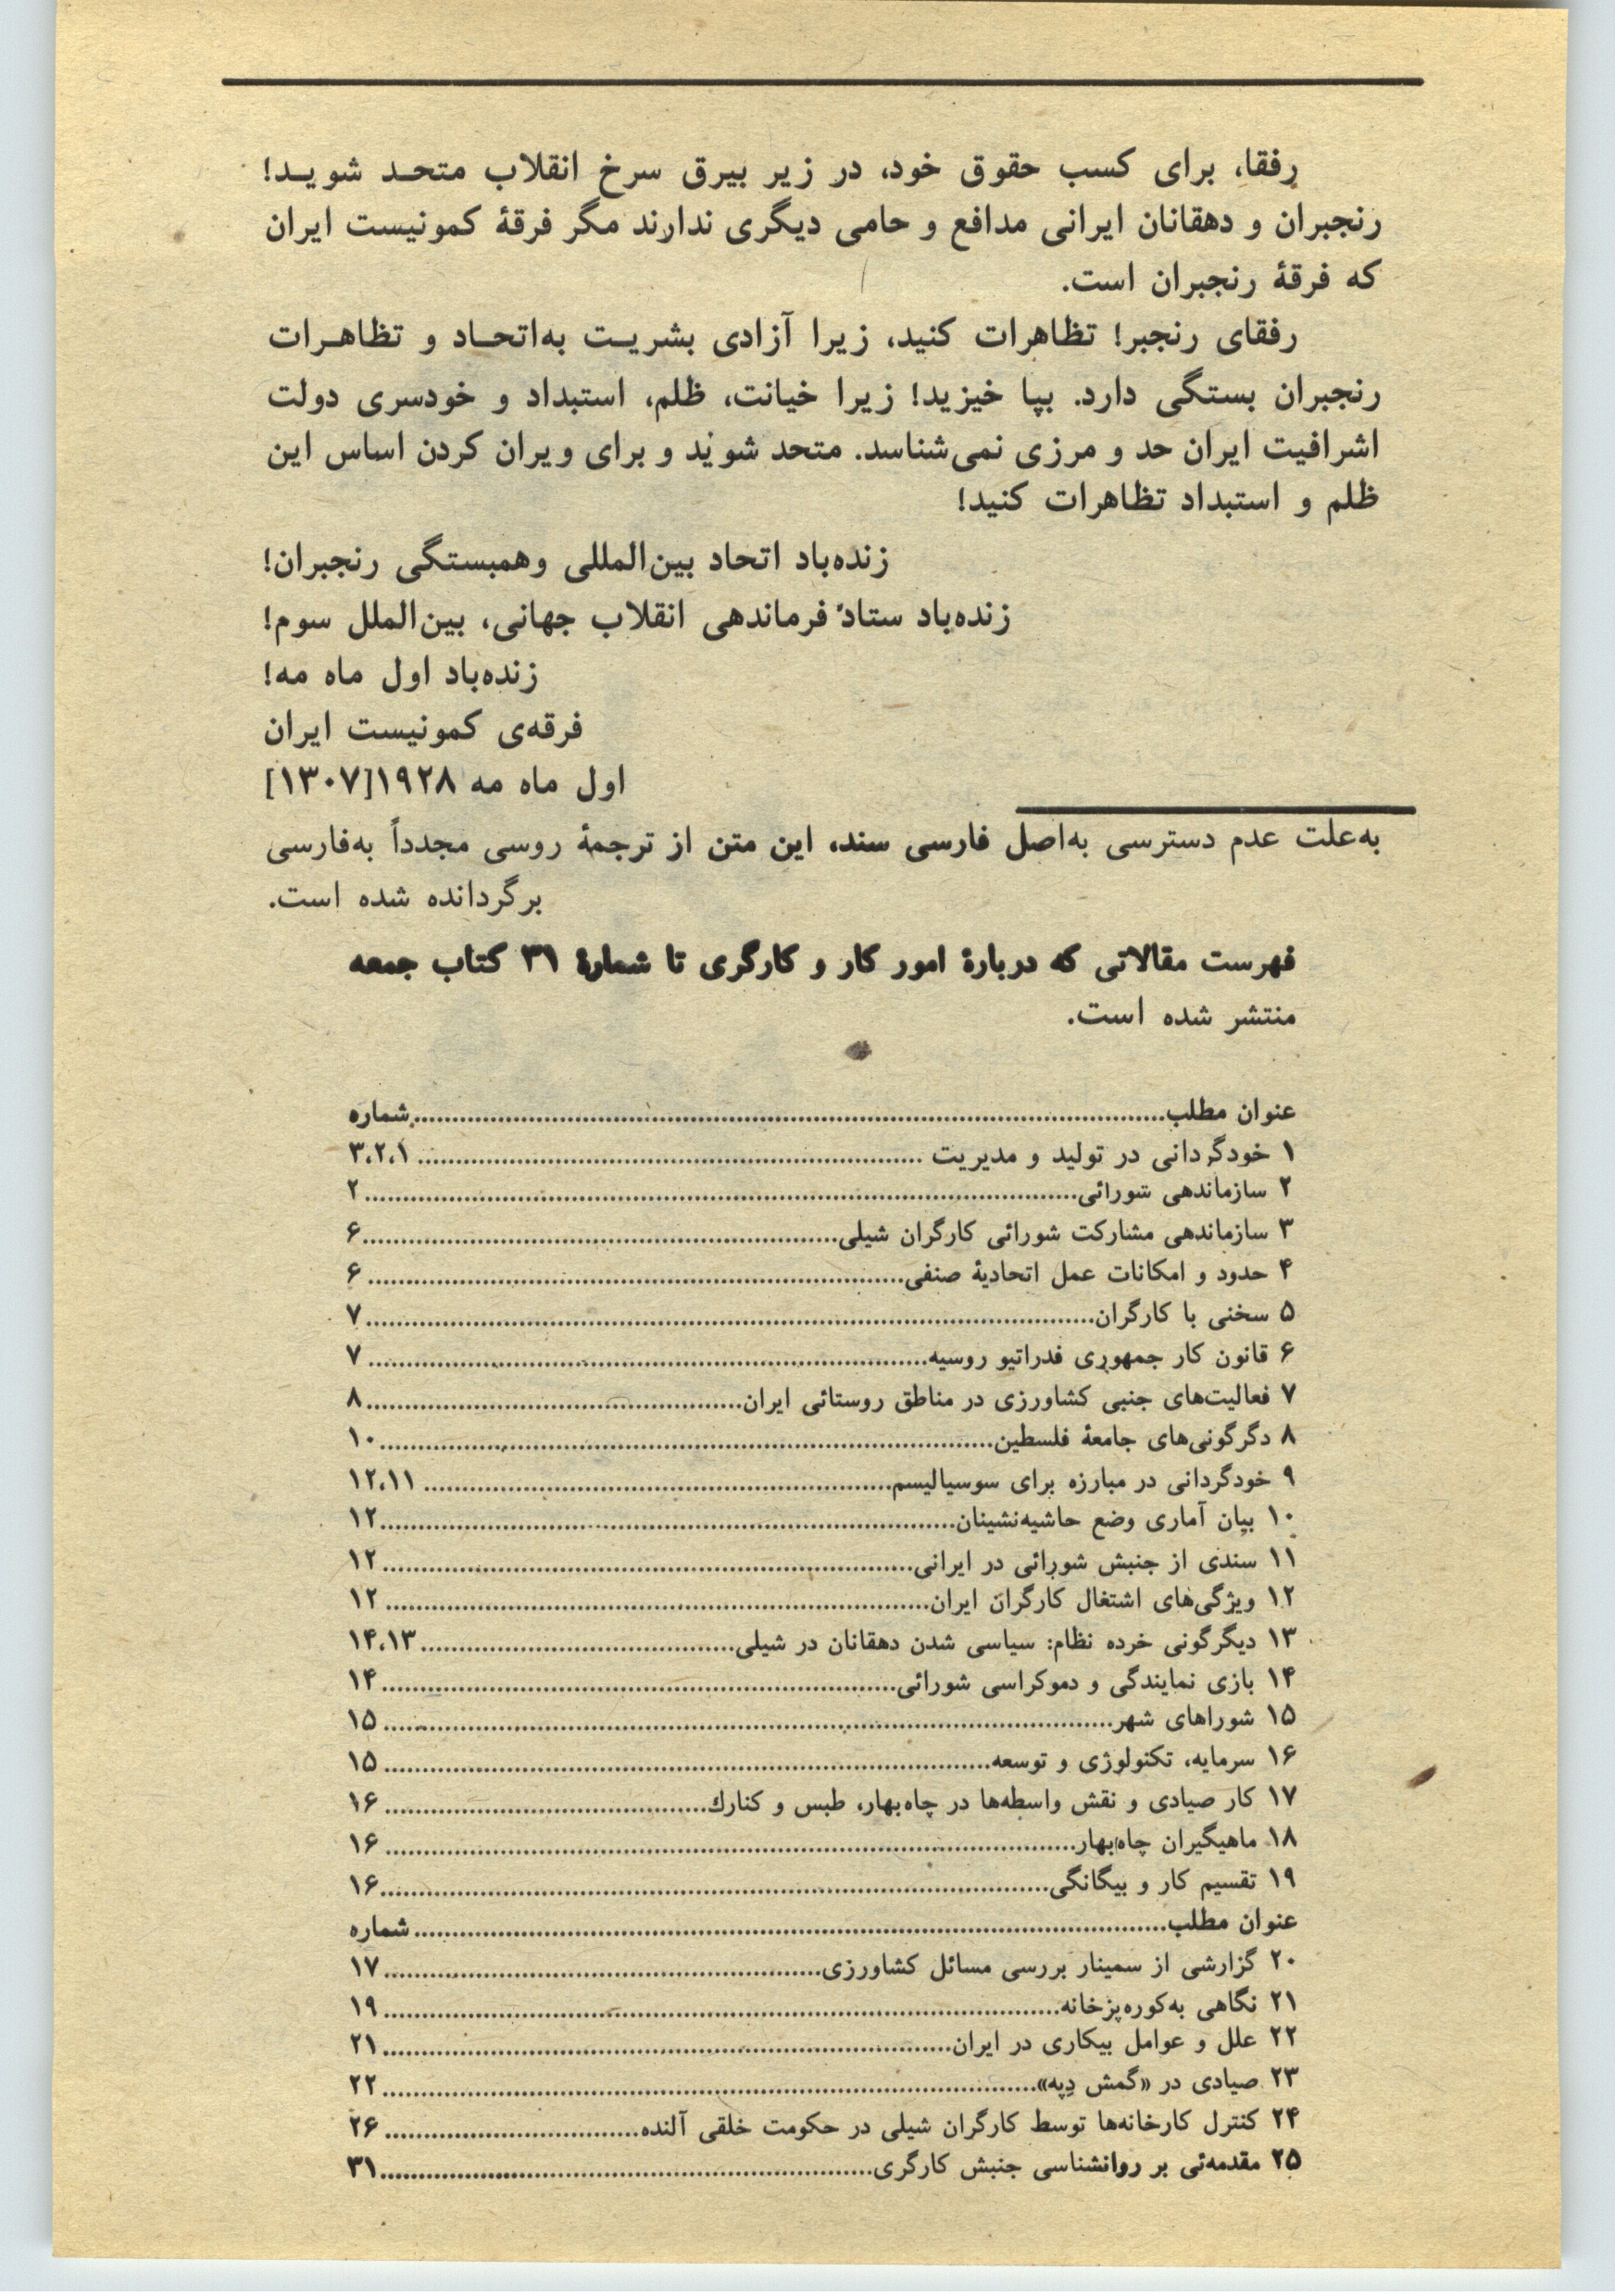 رفقا، برای کسب حقوق خود، در زیر بیرق سرخ انقلاب متحد شوید!
رنجبران و دهقانان ایرانی مدافع و حامی دیگری ندارند مگر فرقهٔ کمونیست ایران
که فرقهٔ رنجبران است.
رفقای رنجبر! تظاهرات کنید، زیرا آزادی بشریت به‌اتحاد و تظاهرات
رنجبران بستگی دارد. بپا خیزید! زیرا خیانت، ظلم، استبداد و خودسری دولت
اشرافیت ایران حد و مرزی نمی‌شناسد. متحد شوید و برای ویران کردن اساس این
ظلم و استبداد تظاهرات کنید!
زنده‌باد اتحاد بین‌المللی وهمبستگی رنجبران!
زنده‌باد ستاد فرماندهی انقلاب جهانی، بین‌الملل سوم!
زنده‌باد اول ماه مه!
فرقه‌ی کمونیست ایران
اول ماه مه ۱۹۲۸[۱۳۰۷]
به‌علت عدم دسترسی به‌اصل فارسی سند، این متن از ترجمهٔ روسی مجدداً به‌فارسی
برگردانده شده است.
فهرست مقالاتی که دربارهٔ امور کار و کارگری تا شمارهٔ ۳۱ کتاب جمعه
منتشر شده است.
عنوان مطلب....................شماره
۱ خودگردانی در تولید و مدیریت ....................۳،۲،۱
۲ سازماندهی شورائی....................۲
۳ سازماندهی مشارکت شورائی کارگران شیلی....................۶
۴ حدود و امکانات عمل اتحادیهٔ صنفی....................۶
۵ سخنی با کارگران....................۷
۶ قانون کار جمهوری فدراتیو روسیه....................۷
۷ فعالیت‌های جنبی کشاورزی در مناطق روستائی ایران....................۸
۸ دگرگونی‌های جامعهٔ فلسطین....................۱۰
۹ خودگردانی در مبارزه برای سوسیالیسم....................۱۲،۱۱
۱۰ بیان آماری وضع حاشیه‌نشینان....................۱۲
۱۱ سندی از جنبش شورائی در ایرانی....................۱۲
۱۲ ویژگی‌های اشتغال کارگران ایران....................۱۲
۱۳ دیگرگونی خرده نظام: سیاسی شدن دهقانان در شیلی....................۱۴،۱۳
۱۴ بازی نمایندگی و دموکراسی شورائی....................۱۴
۱۵ شوراهای شهر....................۱۵
۱۶ سرمایه، تکنولوژی و توسعه....................۱۵
۱۷ کار صیادی و نقش واسطه‌ها در چاه‌بهار، طبس و کنارك....................۱۶
۱۸ ماهیگیران چاه‌بهار....................۱۶
۱۹ تقسیم کار و بیگانگی....................۱۶
عنوان مطلب....................شماره
۲۰ گزارشی از سمینار بررسی مسائل کشاورزی....................۱۷
۲۱ نگاهی به‌کوره‌پزخانه....................۱۹
۲۲ علل و عوامل بیکاری در ایران....................۲۱
۲۳ صیادی در «گمش دِپه»....................۲۲
۲۴ کنترل کارخانه‌ها توسط کارگران شیلی در حکومت خلقی آلنده....................۲۶
۲۵ مقدمه‌ئی بر روانشناسی جنبش کارگری....................۳۱